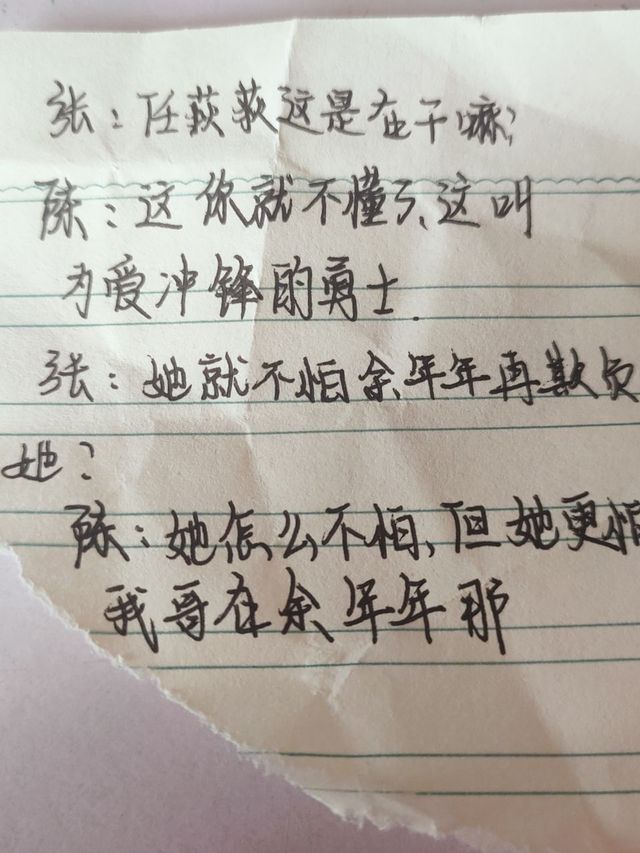 张：任荻荻这是在干嘛？
陈：这你就不懂了，这叫
为爱冲锋的勇士.
张：她就不怕余年年再欺负
她？
陈：她怎么不怕，但她更怕
我哥在余年年那